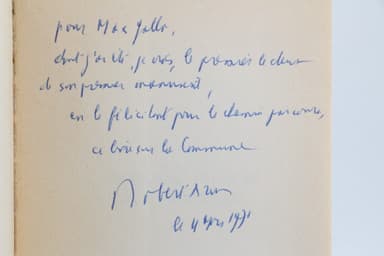 pour Max Gallo,
dont j'ai été, je crois, le premier lecteur
de son premier manuscrit,
en le félicitant pour le chemin parcouru,
ce livre sur la Commune
Robert Aron
le 4 1971